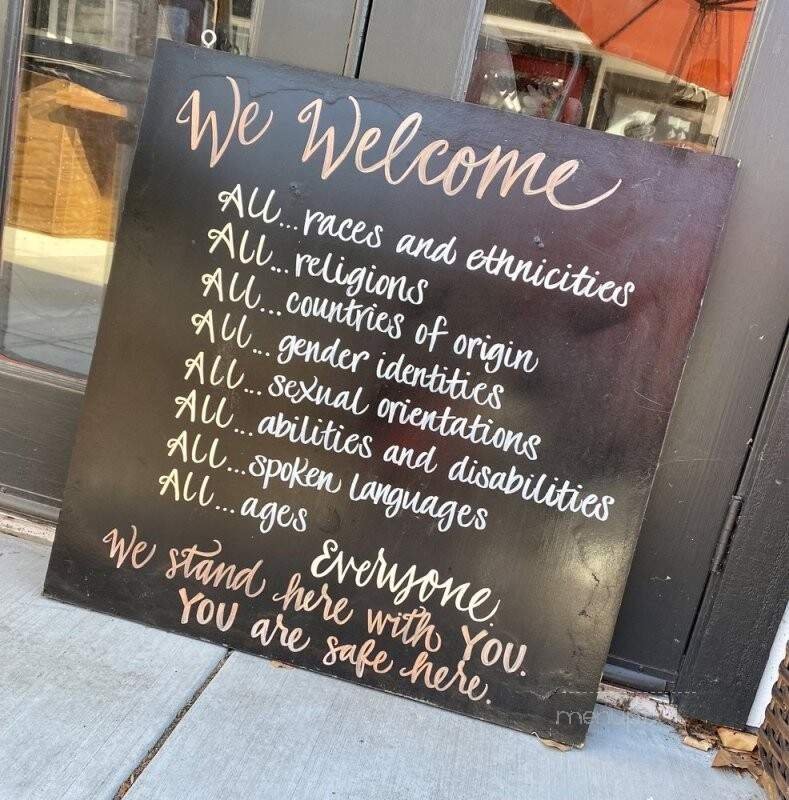 We Welcome
All...races and ethnicities
All...religions
All...countries of origin
All...gender identities
All...sexual orientations
All...abilities and disabilities
All...spoken languages
All...ages
Everyone.
We stand here with You.
You are safe here.